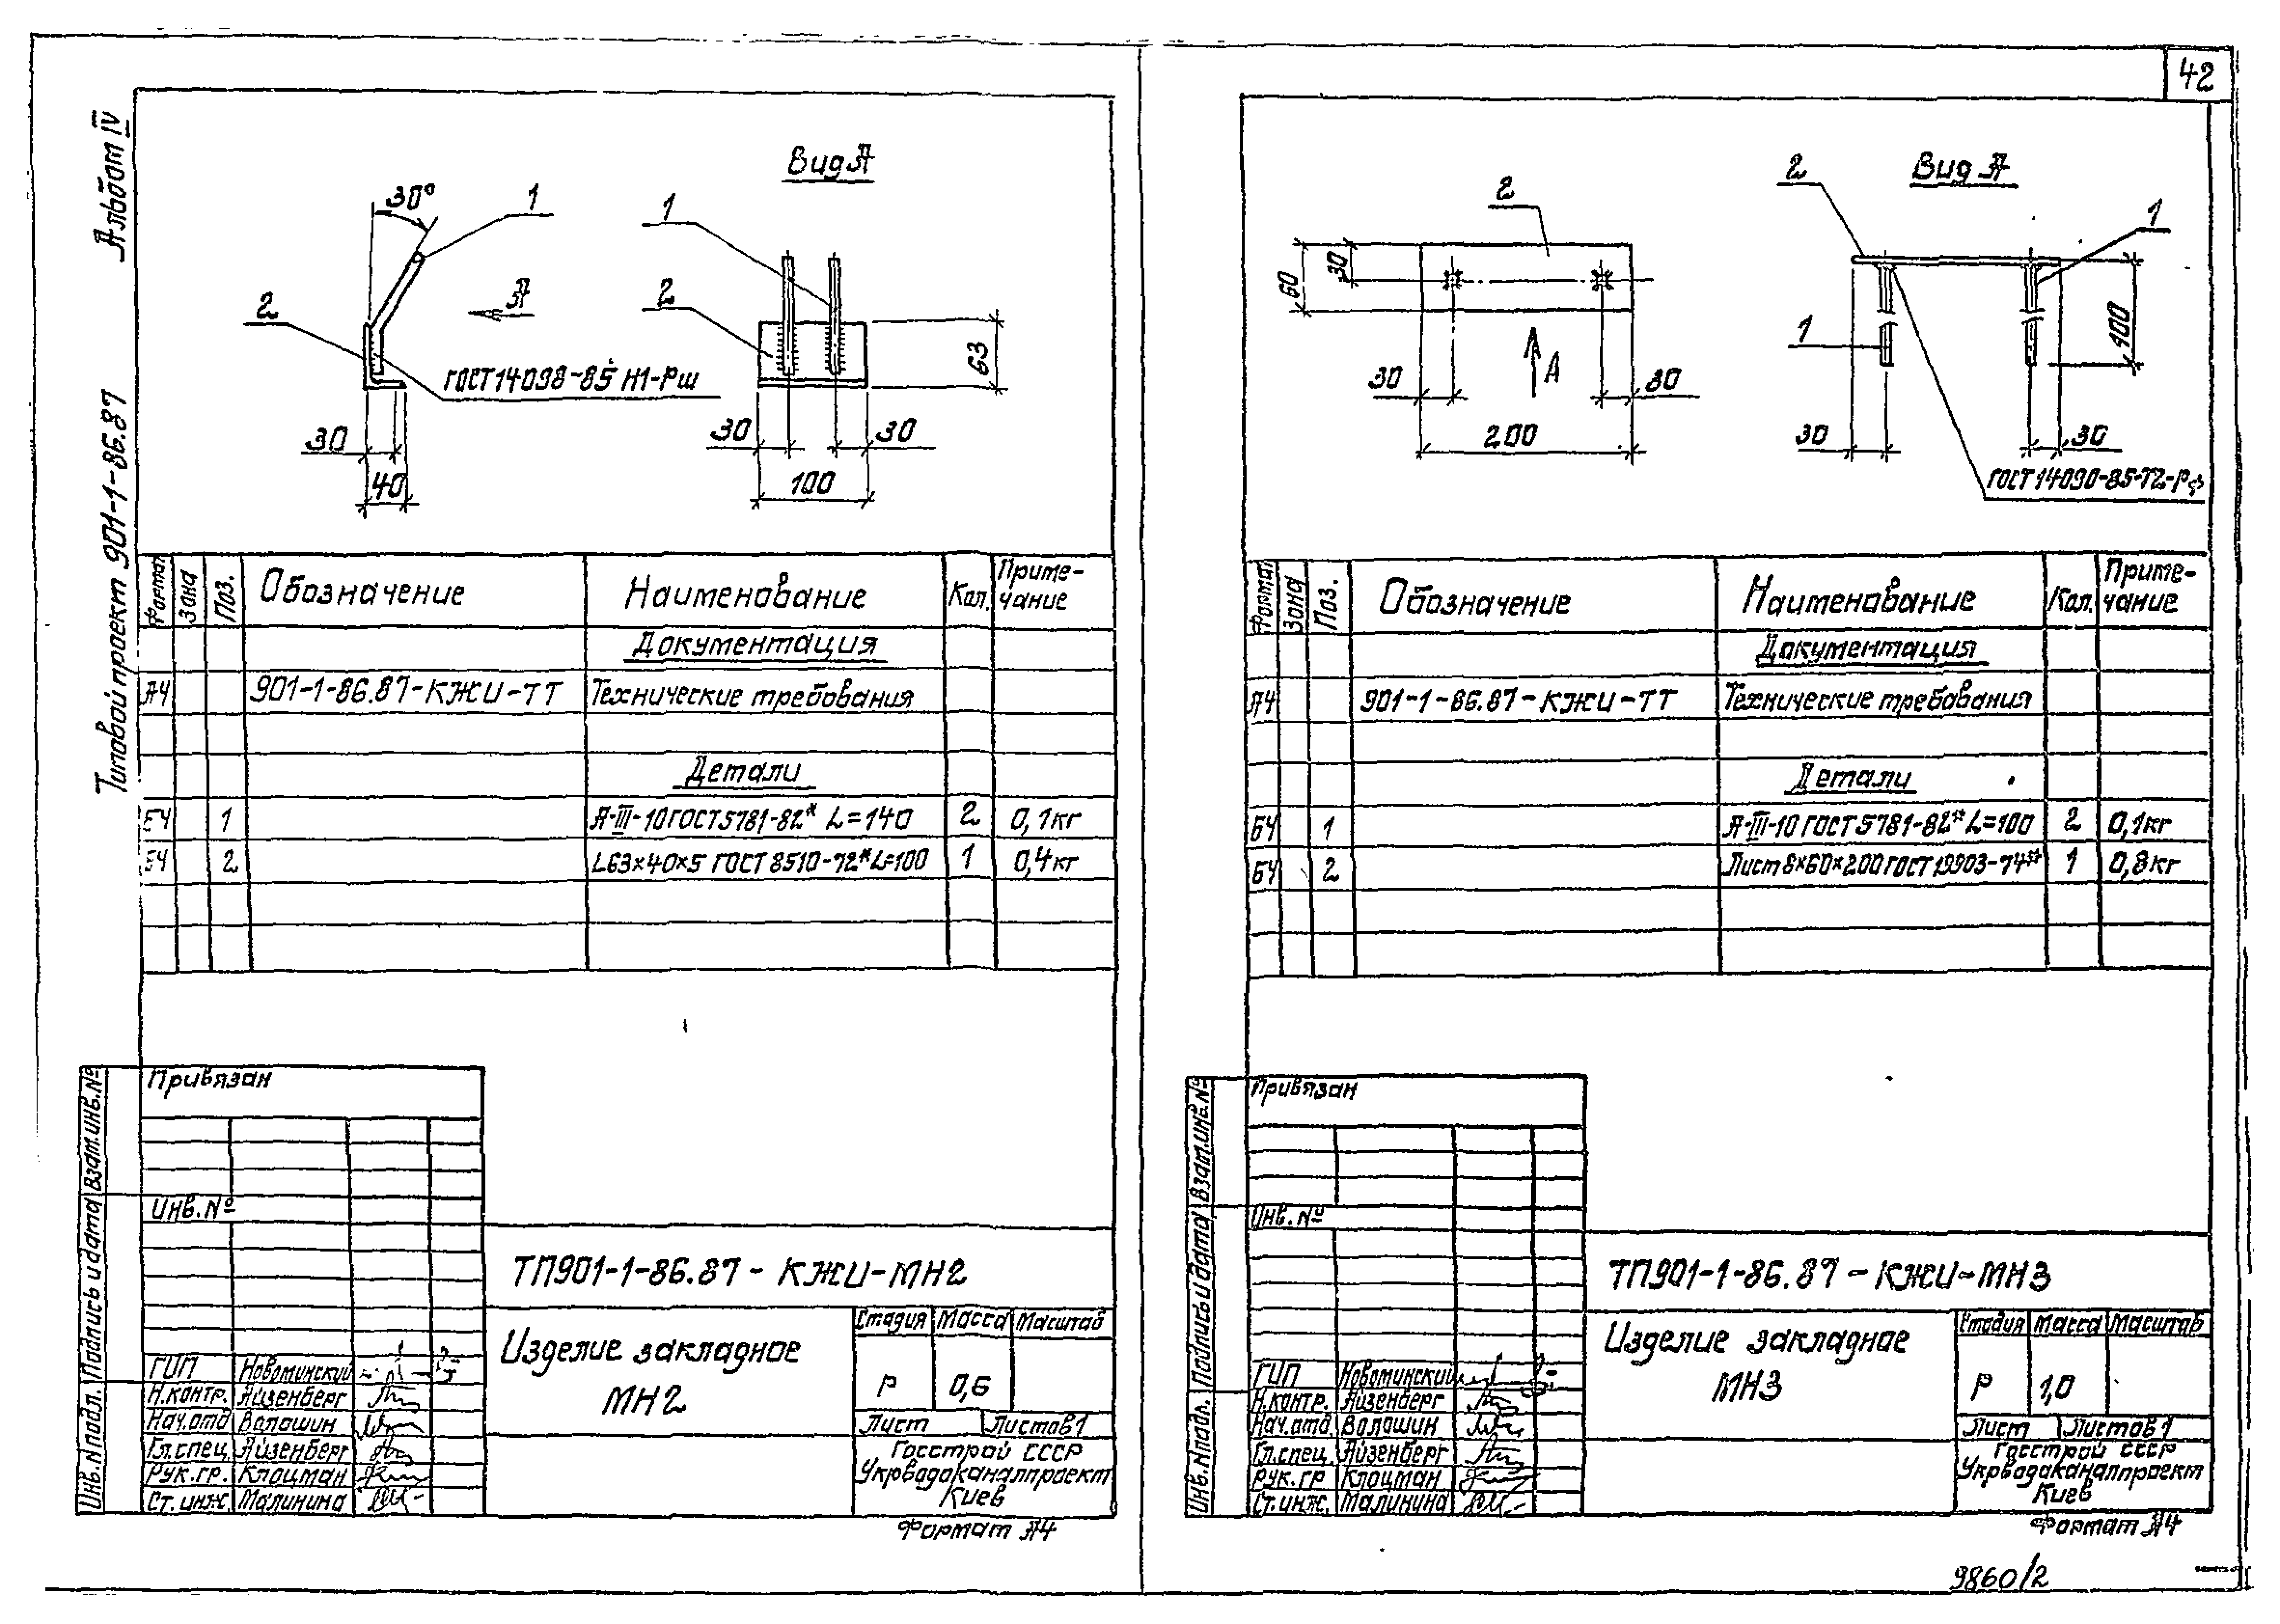 42
Альбом IV
Типовой проект 901-1-86.87
30°
1
2
А
ГОСТ 14098-85 Н1-Рш
30
40
Вид А
1
2
63
30
30
100
Формат
Зона
Поз.
Обозначение
Наименование
Кол.
Приме-
чание
Документация
А4 901-1-86.87-КЖИ-ТТ Технические требования
Детали
БЧ 1 А-III-10 ГОСТ 5781-82* L=140 2 0,1кг
БЧ 2 L63×40×5 ГОСТ 8510-72* L=100 1 0,4кг
Привязан
Инв. №
Взам.инв.№
Подпись и дата
Инв.№подл.
ТП901-1-86.87-КЖИ-МН2
Изделие закладное
МН2
Стадия Масса Масштаб
Р 0,6
Лист Листов 1
Госстрой СССР
Укрводоканалпроект
Киев
ГИП Новоминский
Н.контр. Айзенберг
Нач.отд Волошин
Гл.спец. Айзенберг
Рук.гр. Клоцман
Ст.инж. Малинина
Формат А4
2
60
30
А
30
30
200
Вид А
2
1
1
100
30
30
ГОСТ 14098-85-Т2-Рф
Формат
Зона
Поз.
Обозначение
Наименование
Кол.
Приме-
чание
Документация
А4 901-1-86.87-КЖИ-ТТ Технические требования
Детали
БЧ 1 А-III-10 ГОСТ 5781-82* L=100 2 0,1кг
БЧ 2 Лист 8×60×200 ГОСТ 19903-74* 1 0,8кг
Привязан
Инв. №
Взам.инв.№
Подпись и дата
Инв.№подл.
ТП901-1-86.87-КЖИ-МН3
Изделие закладное
МН3
Стадия Масса Масштаб
Р 1,0
Лист Листов 1
Госстрой СССР
Укрводоканалпроект
Киев
ГИП Новоминский
Н.контр. Айзенберг
Нач.отд. Волошин
Гл.спец. Айзенберг
Рук.гр Клоцман
Ст.инж. Малинина
Формат А4
9860/2